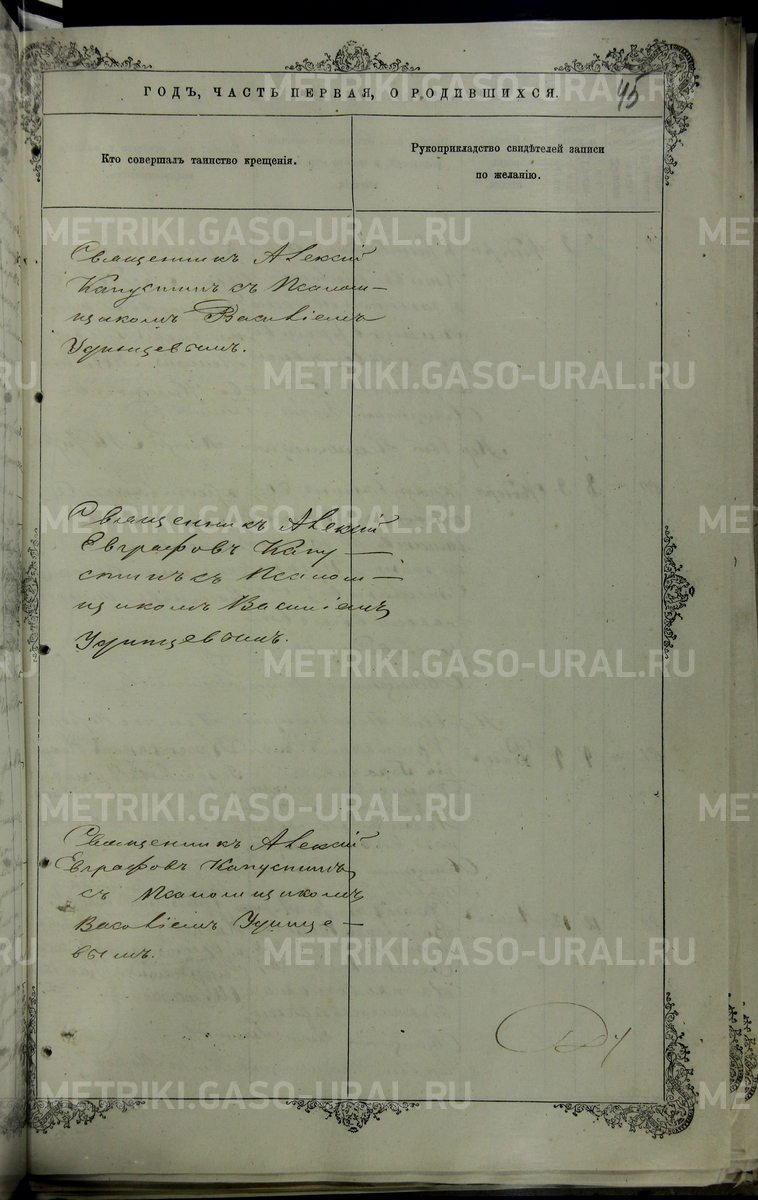 45
ГОДЪ, ЧАСТЬ ПЕРВАЯ, О РОДИВШИХСЯ.
Кто совершалъ таинство крещенія.
Рукоприкладство свидѣтелей записи
по желанію.
Священникъ Алексій
Капустинъ съ Псалом-
щикомъ Василіемъ
Удинцевымъ.
Священникъ Алексій
Евграфовъ Капу-
стинъ съ Псалом-
щикомъ Василіемъ
Удинцевымъ.
Священникъ Алексій
Евграфовъ Капустинъ
съ Псаломщикомъ
Василіемъ Удинце-
вымъ.
METRIKI.GASO-URAL.RU